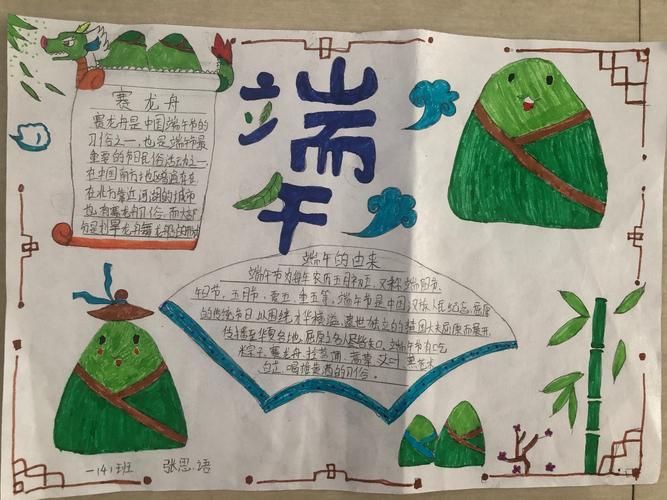 端午
赛龙舟
赛龙舟是中国端午节的
习俗之一,也是端午节最
重要的节日民俗活动之一,
在中国南方地区普遍存在
在北方靠近河湖的城市
也有赛龙舟习俗,而大部
分是划旱龙舟舞龙船的形式
端午的由来
端午节为每年农历五月初五,又称端阳节、
午日节、五月节、
端午节是中国汉族人民纪念屈原
的传统节日,以围绕才华横溢、遗世独立的楚国大夫屈原而展开,
传播至华夏各地,
粽子,赛龙舟,挂菖蒲、蒿草、艾叶,熏苍术、
白芷,喝雄黄酒的习俗。
一(4)班 张思语